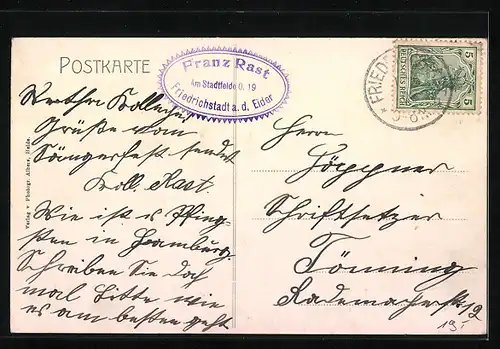 POSTKARTE
Franz Rast
Am Stadtfelde O. 19
Friedrichstadt a. d. Eider
5 5
DEUTSCHES REICH
FRIED
Werther Kollege,
Grüße vom
Sängerfest sendet
Koll. Rast.
Wie ist es Pfing-
sten in Hamburg.
Schreiben Sie doch
mal bitte wie
es am besten geht
Herrn
Höppner
Schriftsetzer
Tönning
Rademacherstr. 12
Verlag v. Photogr. Albers, Heide.